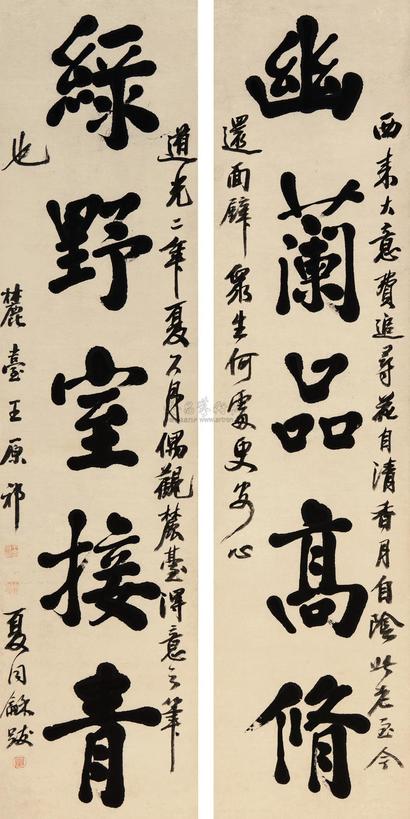 西来大意費追尋花自清香月自陰此老至今
幽蘭品高脩
還面壁衆生何處更安心
道光二年夏六月偶觀麓臺得意之筆
綠野室接青
也
麓臺王原祁
夏同龢跋